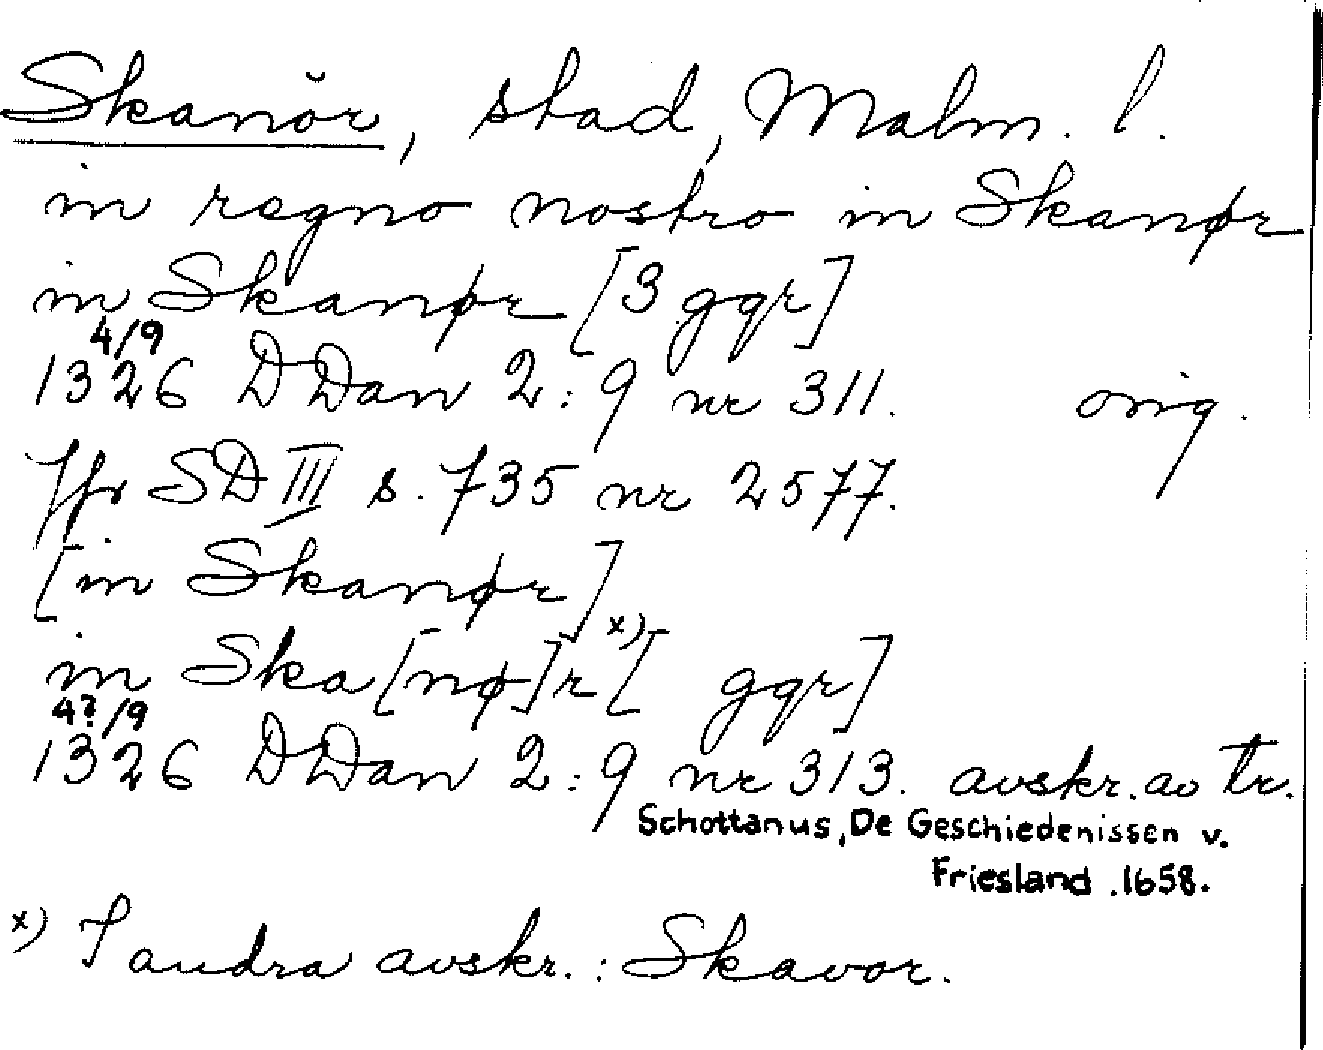 Skanör, stad, Malm. l.
in regno nostro in Skanør
in Skanør [3 ggr]
4/9
1326 DDan 2:9 nr 311. orig.
Jfr SD III s. 735 nr 2577.
[in Skanør]
in Ska[nø]r x) [ ggr]
4?/9
1326 DDan 2:9 nr 313. avskr. av tr.
Schottanus, De Geschiedenissen v.
Friesland. 1658.
x) I andra avskr.: Skavor.